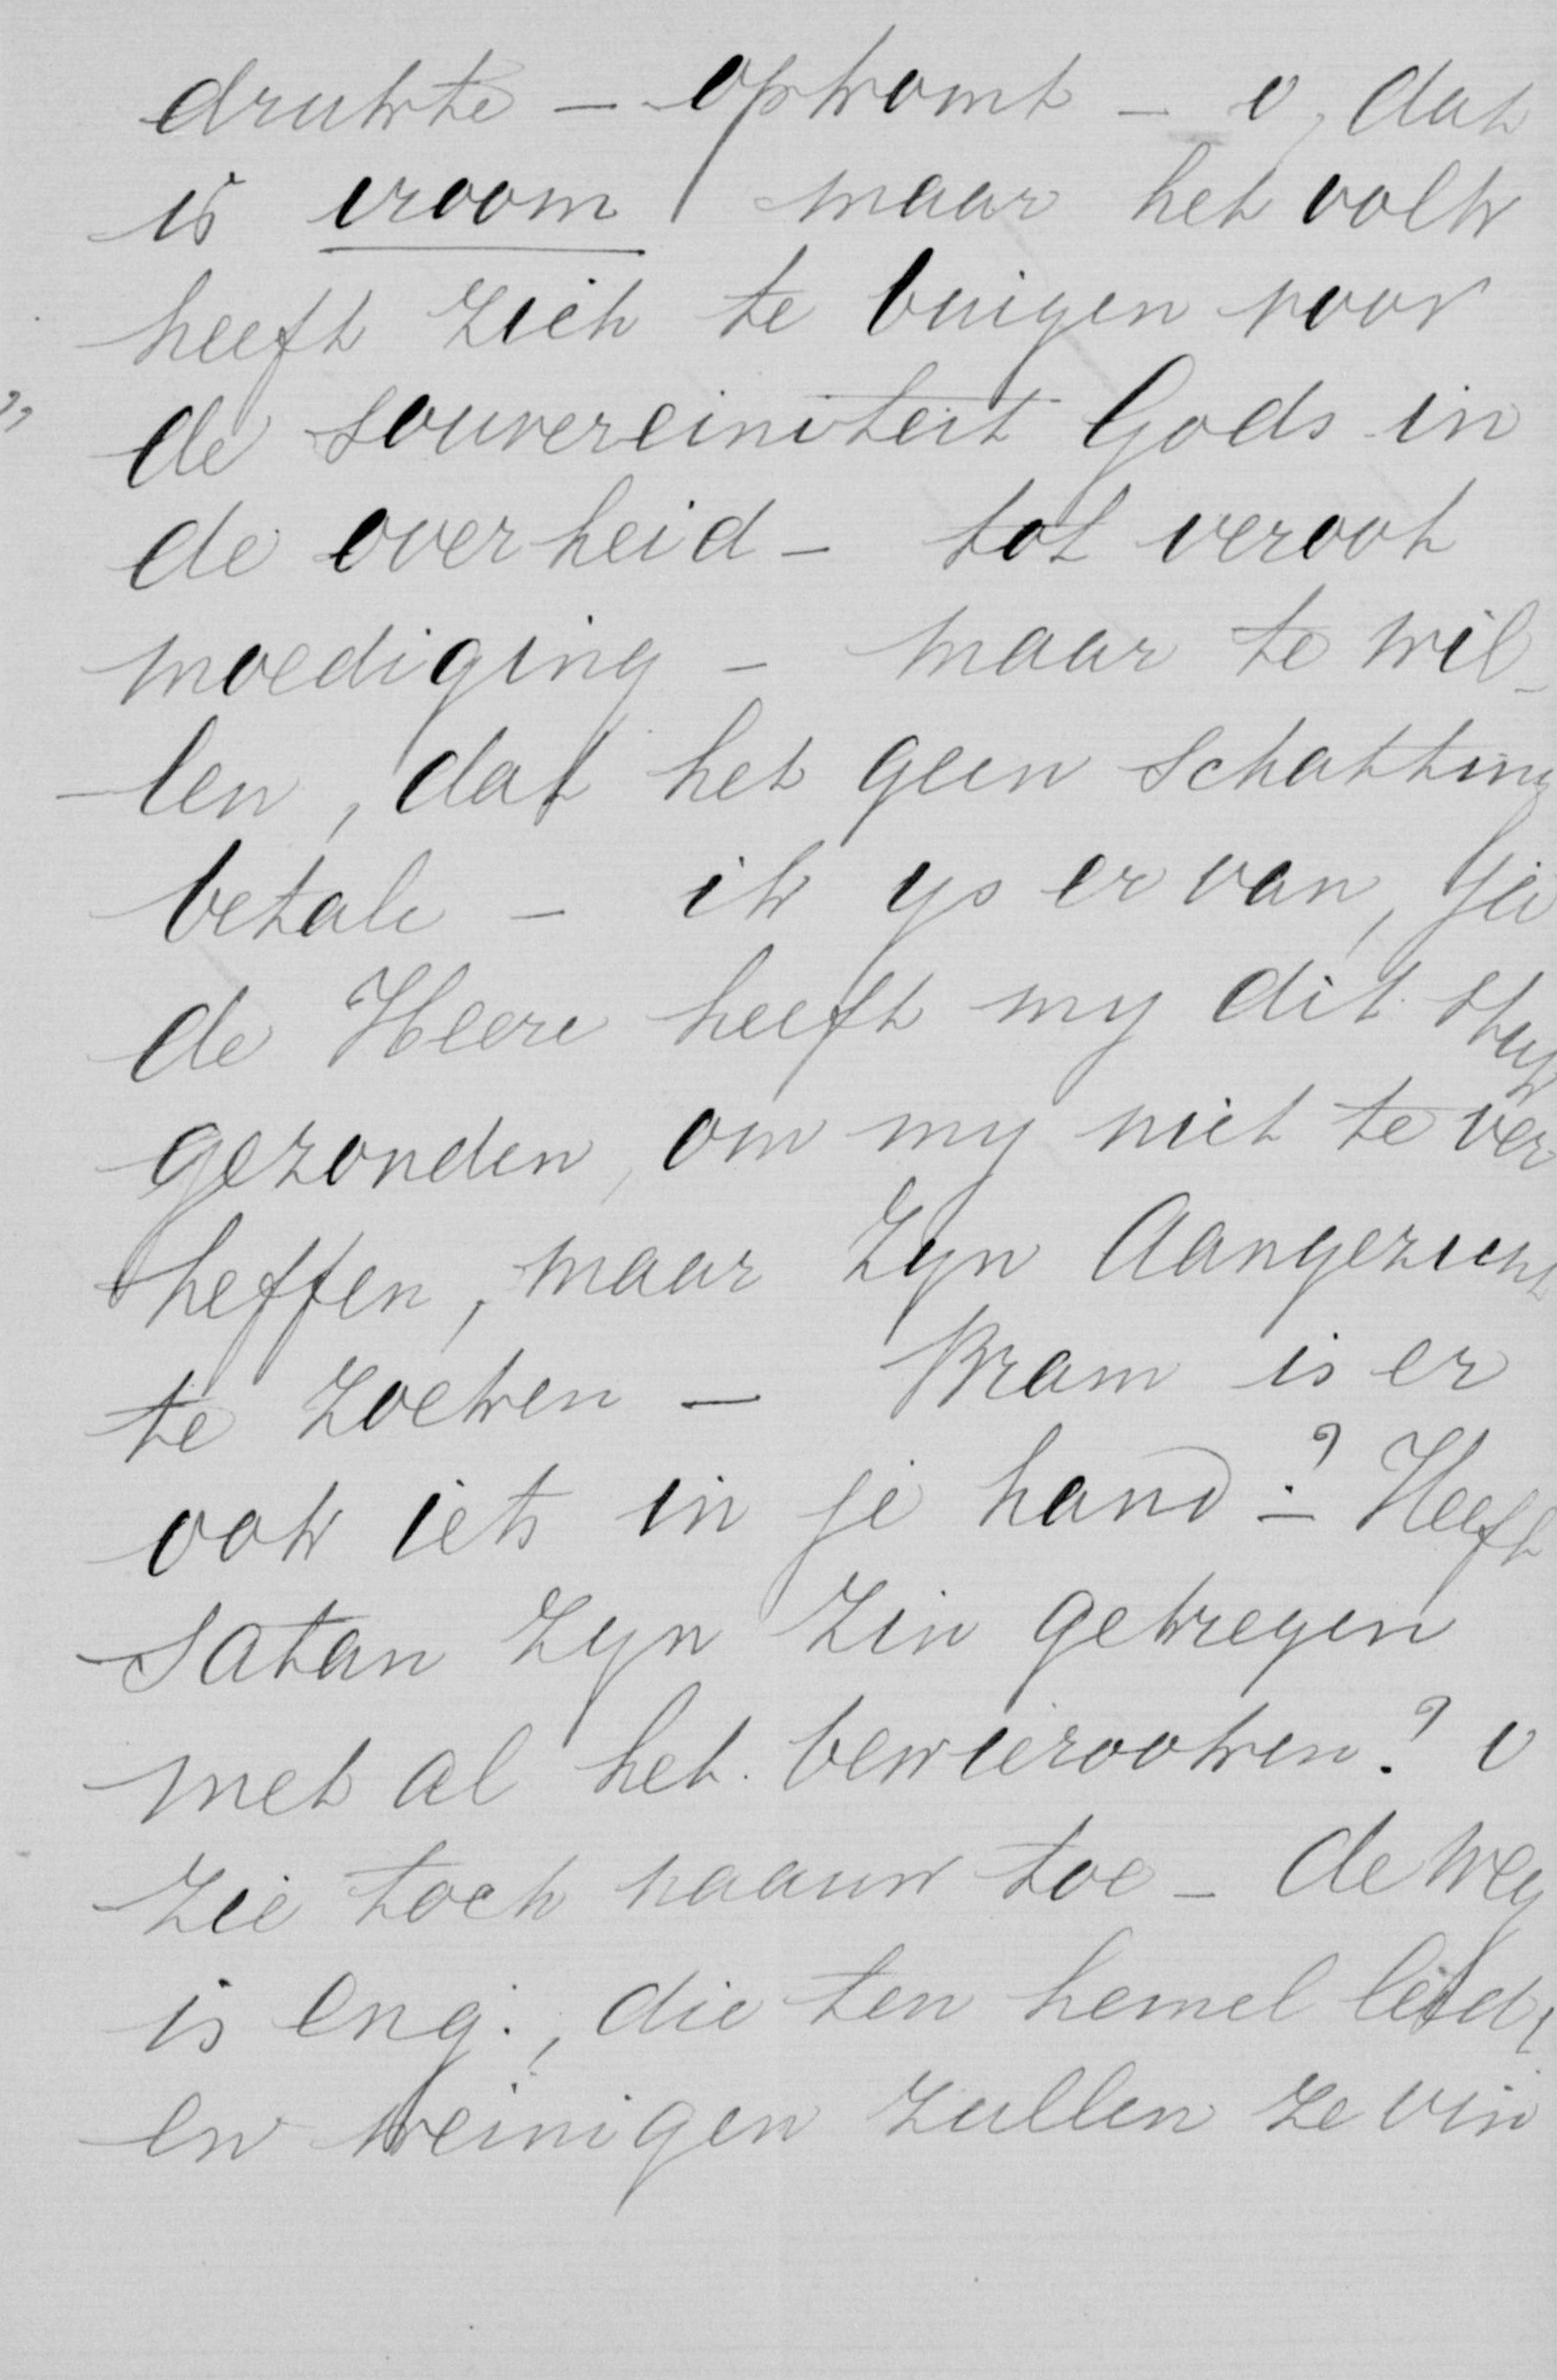 drukte – opkomt – o, dat
is vroom maar het volk
heeft zich te buigen voor
de souvereiniteit Gods in
de overheid – tot veroot
moediging – maar te wil-
-len, dat het geen schatting
betale – ik ys er van,
de Heere heeft my dit stuk
gezonden, om my niet te ver
heffen, maar Zyn Aangezicht
te zoeken – Bram is er
ook iets in je hand? – Heeft
satan zyn zin gekregen
met al het bewierooken? o
zie toch naauw toe – de weg
is eng., die ten hemel leidt
en weinigen zullen ze vin